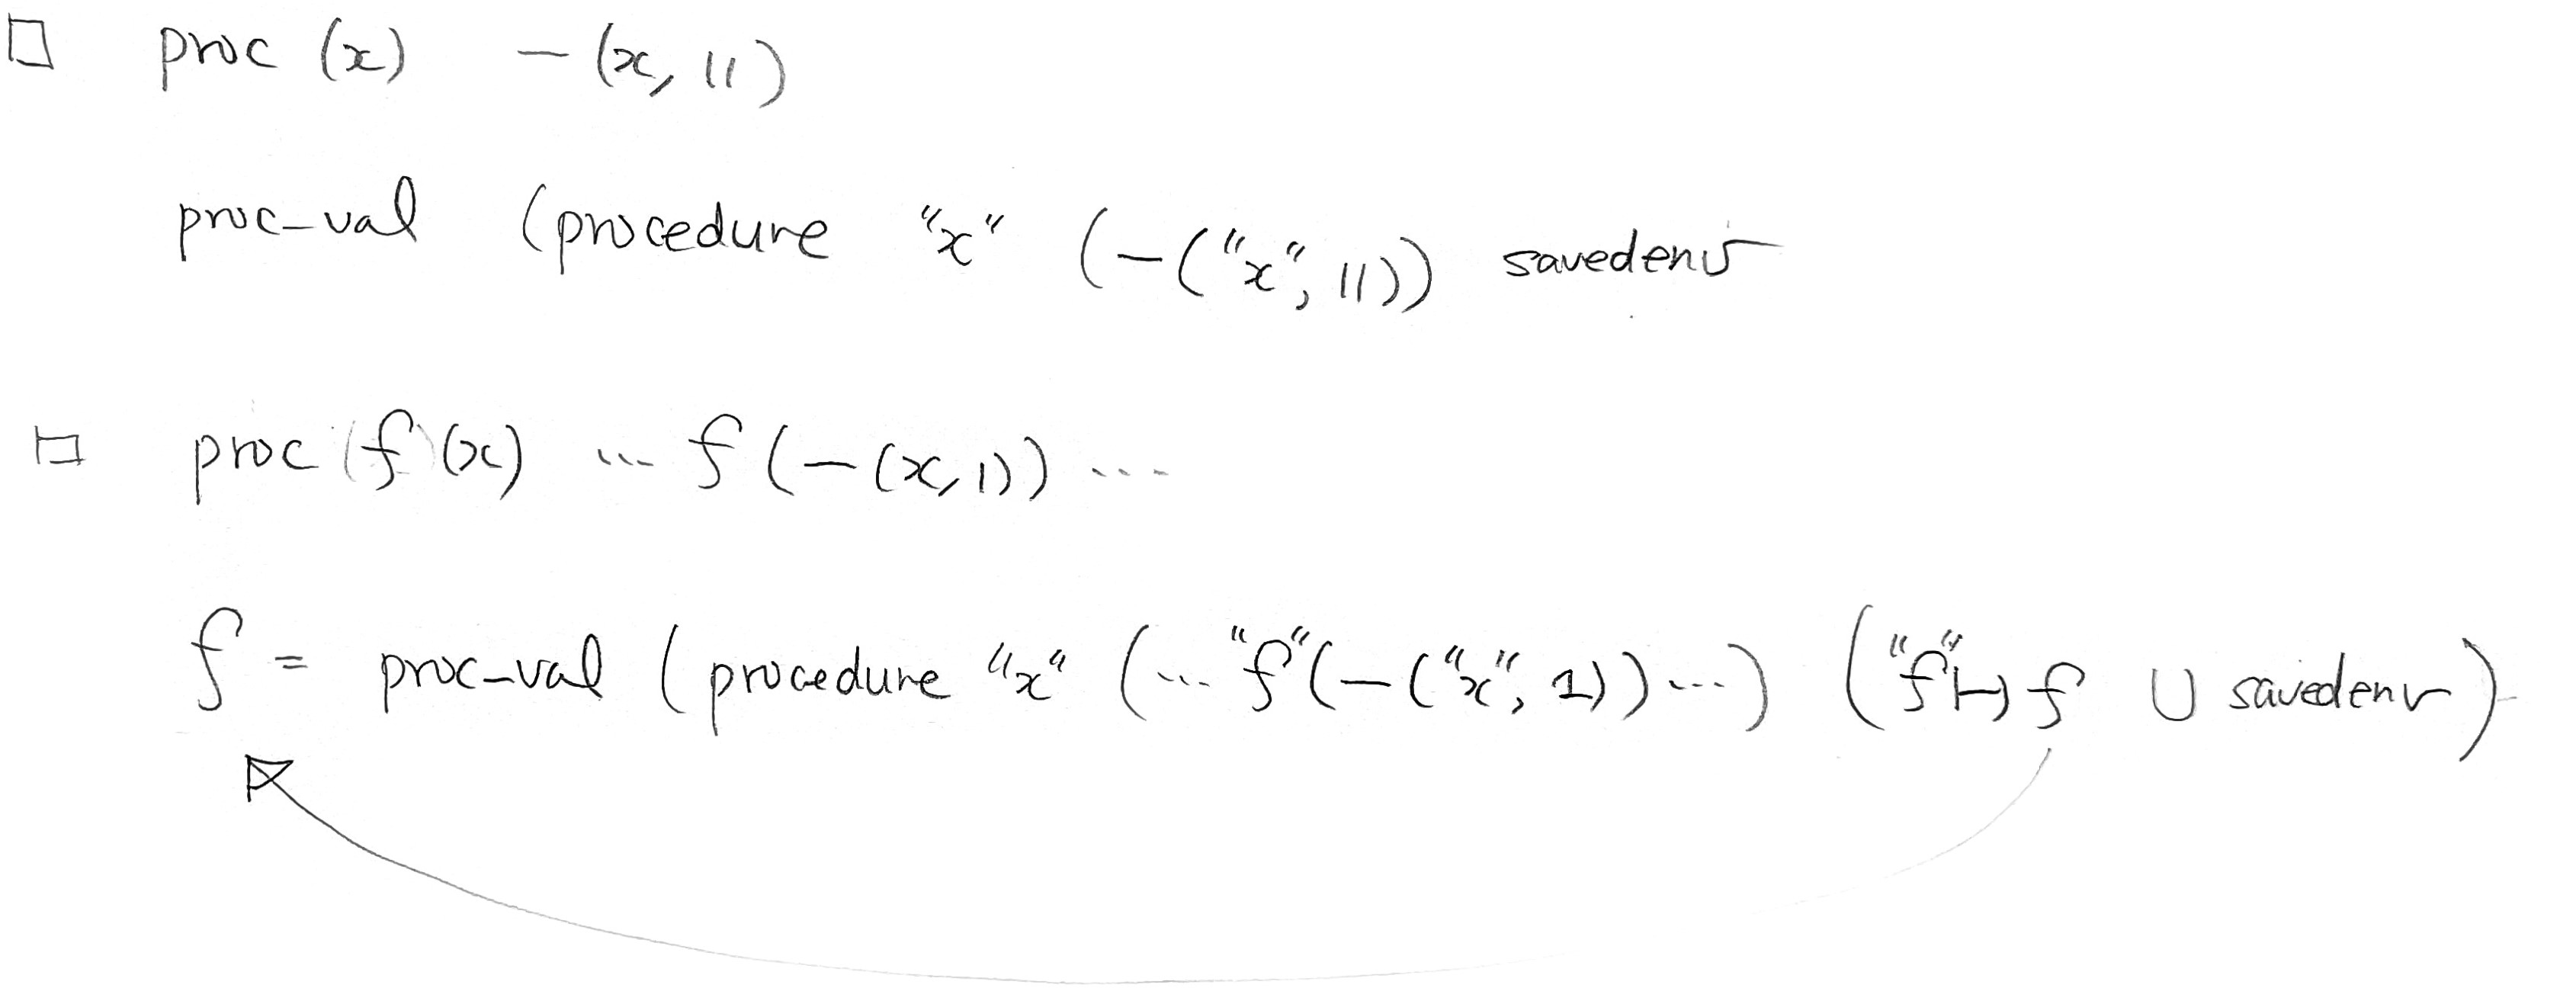 □ proc (x) -(x, 11)
proc-val (procedure "x" (-("x", 11)) savedenv
□ proc (f) (x) ... f (-(x, 1)) ...
f = proc-val (procedure "x" (... "f" (-("x", 1)) ...) ("f" ↦ f ∪ savedenv)